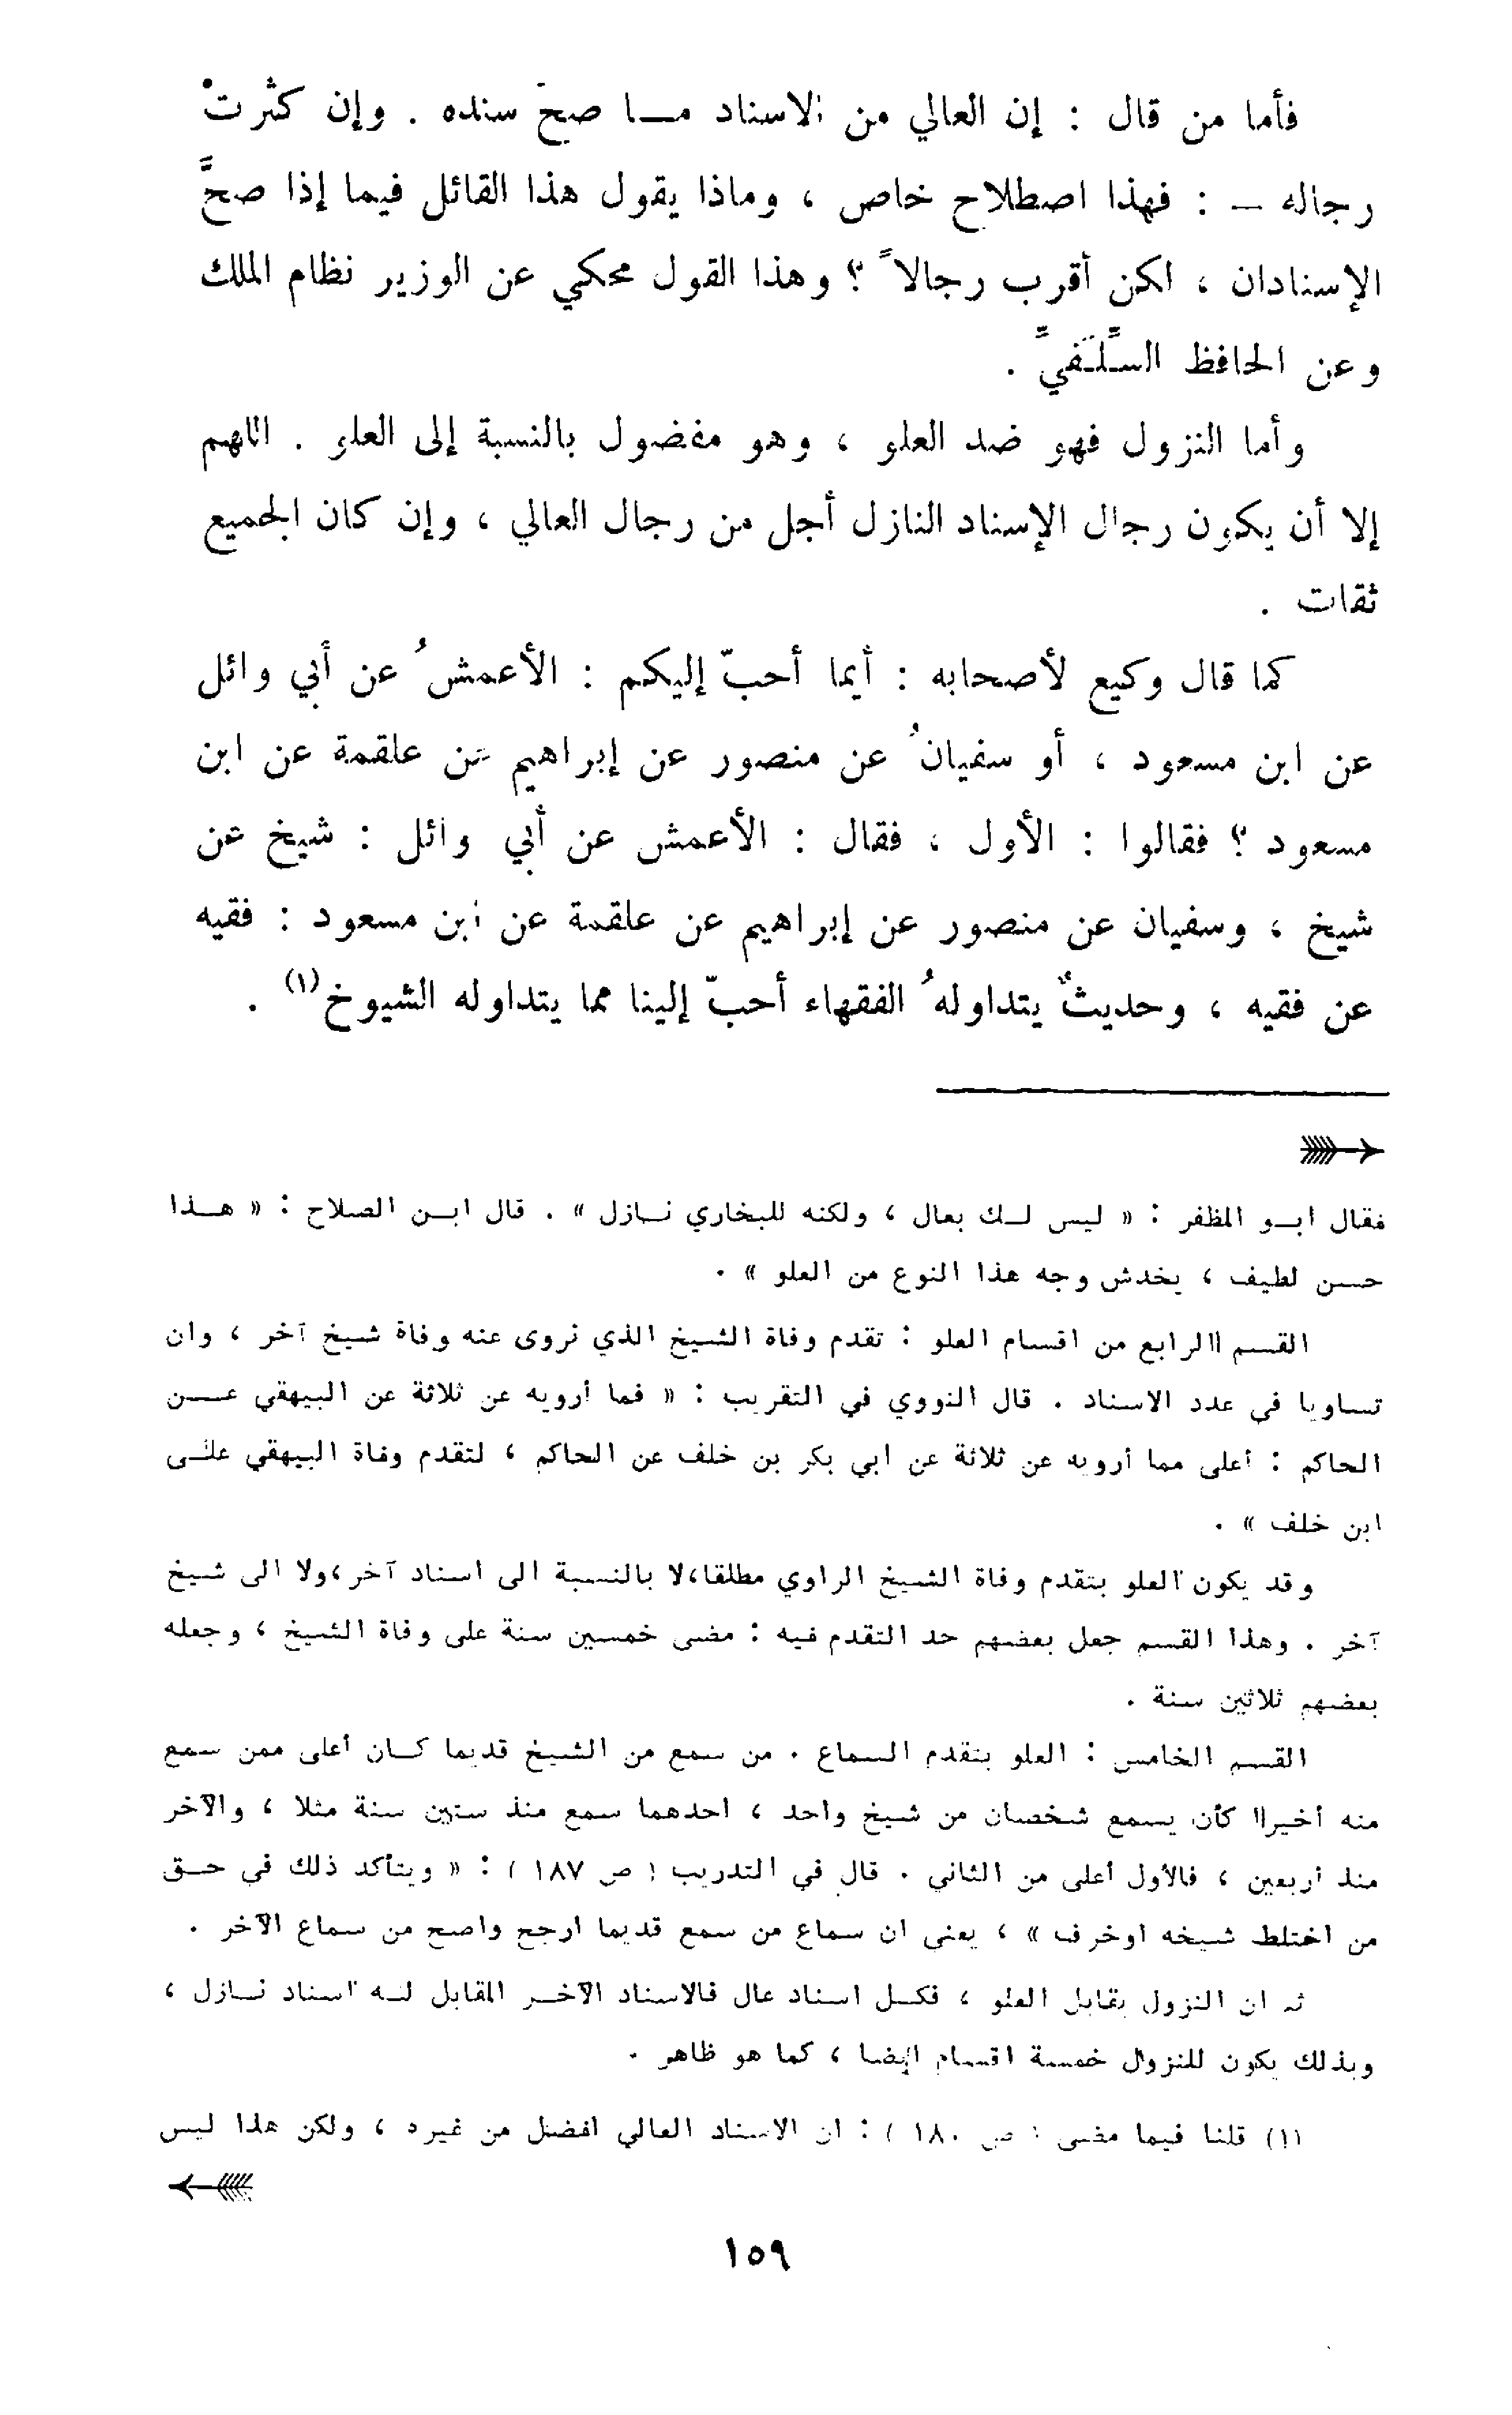 فأما من قال : إن العالي من الاسناد مـــا صحّ سنده . وإن كثرتْ
رجاله – : فهذا اصطلاح خاص ، وماذا يقول هذا القائل فيما إذا صحَّ
الإسنادان ، لكن أقرب رجالاً ؟ وهذا القول محكي عن الوزير نظام الملك
وعن الحافظ السِّلَفيِّ .
وأما النزول فهو ضد العلو ، وهو مفضول بالنسبة إلى العلو . اللهم
إلا أن يكون رجال الإسناد النازل أجل من رجال العالي ، وإن كان الجميع
ثقات .
كما قال وكيع لأصحابه : أيما أحبّ إليكم : الأعمشُ عن أبي وائل
عن ابن مسعود ، أو سفيانُ عن منصور عن إبراهيم عن علقمة عن ابن
مسعود ؟ فقالوا : الأول ، فقال : الأعمش عن أبي وائل : شيخ عن
شيخ ، وسفيان عن منصور عن إبراهيم عن علقمة عن ابن مسعود : فقيه
عن فقيه ، وحديثٌ يتداولهُ الفقهاء أحبّ إلينا مما يتداوله الشيوخ (١) .
فقال ابـو المظفر : « ليس لـك بعال ، ولكنه للبخاري نـازل » . قال ابـن الصلاح : « هـذا
حسن لطيف ، يخدش وجه هذا النوع من العلو » .
القسم الرابع من اقسام العلو : تقدم وفاة الشيخ الذي نروى عنه وفاة شيخ آخر ، وان
تساويا في عدد الاسناد . قال النووي في التقريب : « فما أرويه عن ثلاثة عن البيهقي عـــن
الحاكم : أعلى مما أرويه عن ثلاثة عن ابي بكر بن خلف عن الحاكم ، لتقدم وفاة البيهقي علـى
ابن خلف » .
وقد يكون العلو بتقدم وفاة الشيخ الراوي مطلقا،لا بالنسبة الى اسناد آخر،ولا الى شيخ
آخر . وهذا القسم جعل بعضهم حد التقدم فيه : مضى خمسين سنة على وفاة الشيخ ، وجعله
بعضهم ثلاثين سنة .
القسم الخامس : العلو بتقدم السماع . من سمع من الشيخ قديما كـان أعلى ممن سمع
منه أخيرا كأن يسمع شخصان من شيخ واحد ، احدهما سمع منذ ستين سنة مثلا ، والآخر
منذ أربعين ، فالأول أعلى من الثاني . قال في التدريب ( ص ١٨٧ ) : « ويتأكد ذلك في حـق
من اختلط شيخه اوخرف » ، يعنى ان سماع من سمع قديما ارجح واصح من سماع الآخر .
ثم ان النزول يقابل العلو ، فكـل اسناد عال فالاسناد الآخـر المقابل لـه اسناد نـازل ،
وبذلك يكون للنزول خمسة اقسام ايضا ، كما هو ظاهر .
(١) قلنا فيما مضى ( ص ١٨٠ ) : ان الاسناد العالي افضل من غيره ، ولكن هذا ليس
١٥٩